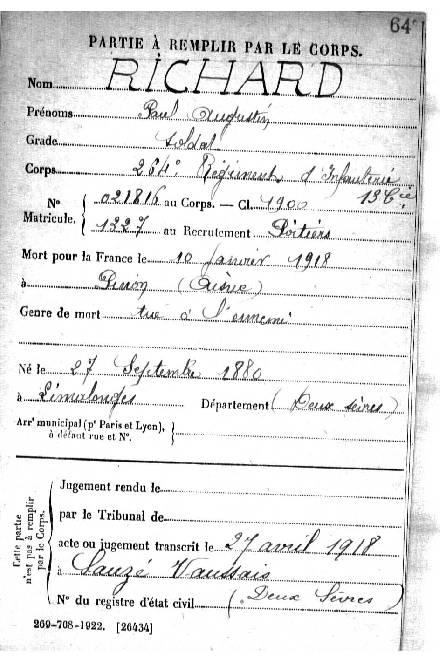 64
PARTIE À REMPLIR PAR LE CORPS.
Nom RICHARD
Prénoms Paul Augustin
Grade Soldat
Corps 264e Régiment d'Infanterie
13 Cie
N° Matricule. { 021816 au Corps. — Cl. 1900
1227 au Recrutement Poitiers
Mort pour la France le 10 Janvier 1918
à Pinon (Aisne)
Genre de mort tué à l'ennemi
Né le 27 Septembre 1880
à Limalonges Département (Deux Sèvres)
Arrt municipal (pr Paris et Lyon), }
à défaut rue et N°.
Cette partie n'est pas à remplir par le Corps.
Jugement rendu le
par le Tribunal de
acte ou jugement transcrit le 27 avril 1918
à Sauzé Vaussais
N° du registre d'état civil (Deux Sèvres)
269-708-1922. [26434]